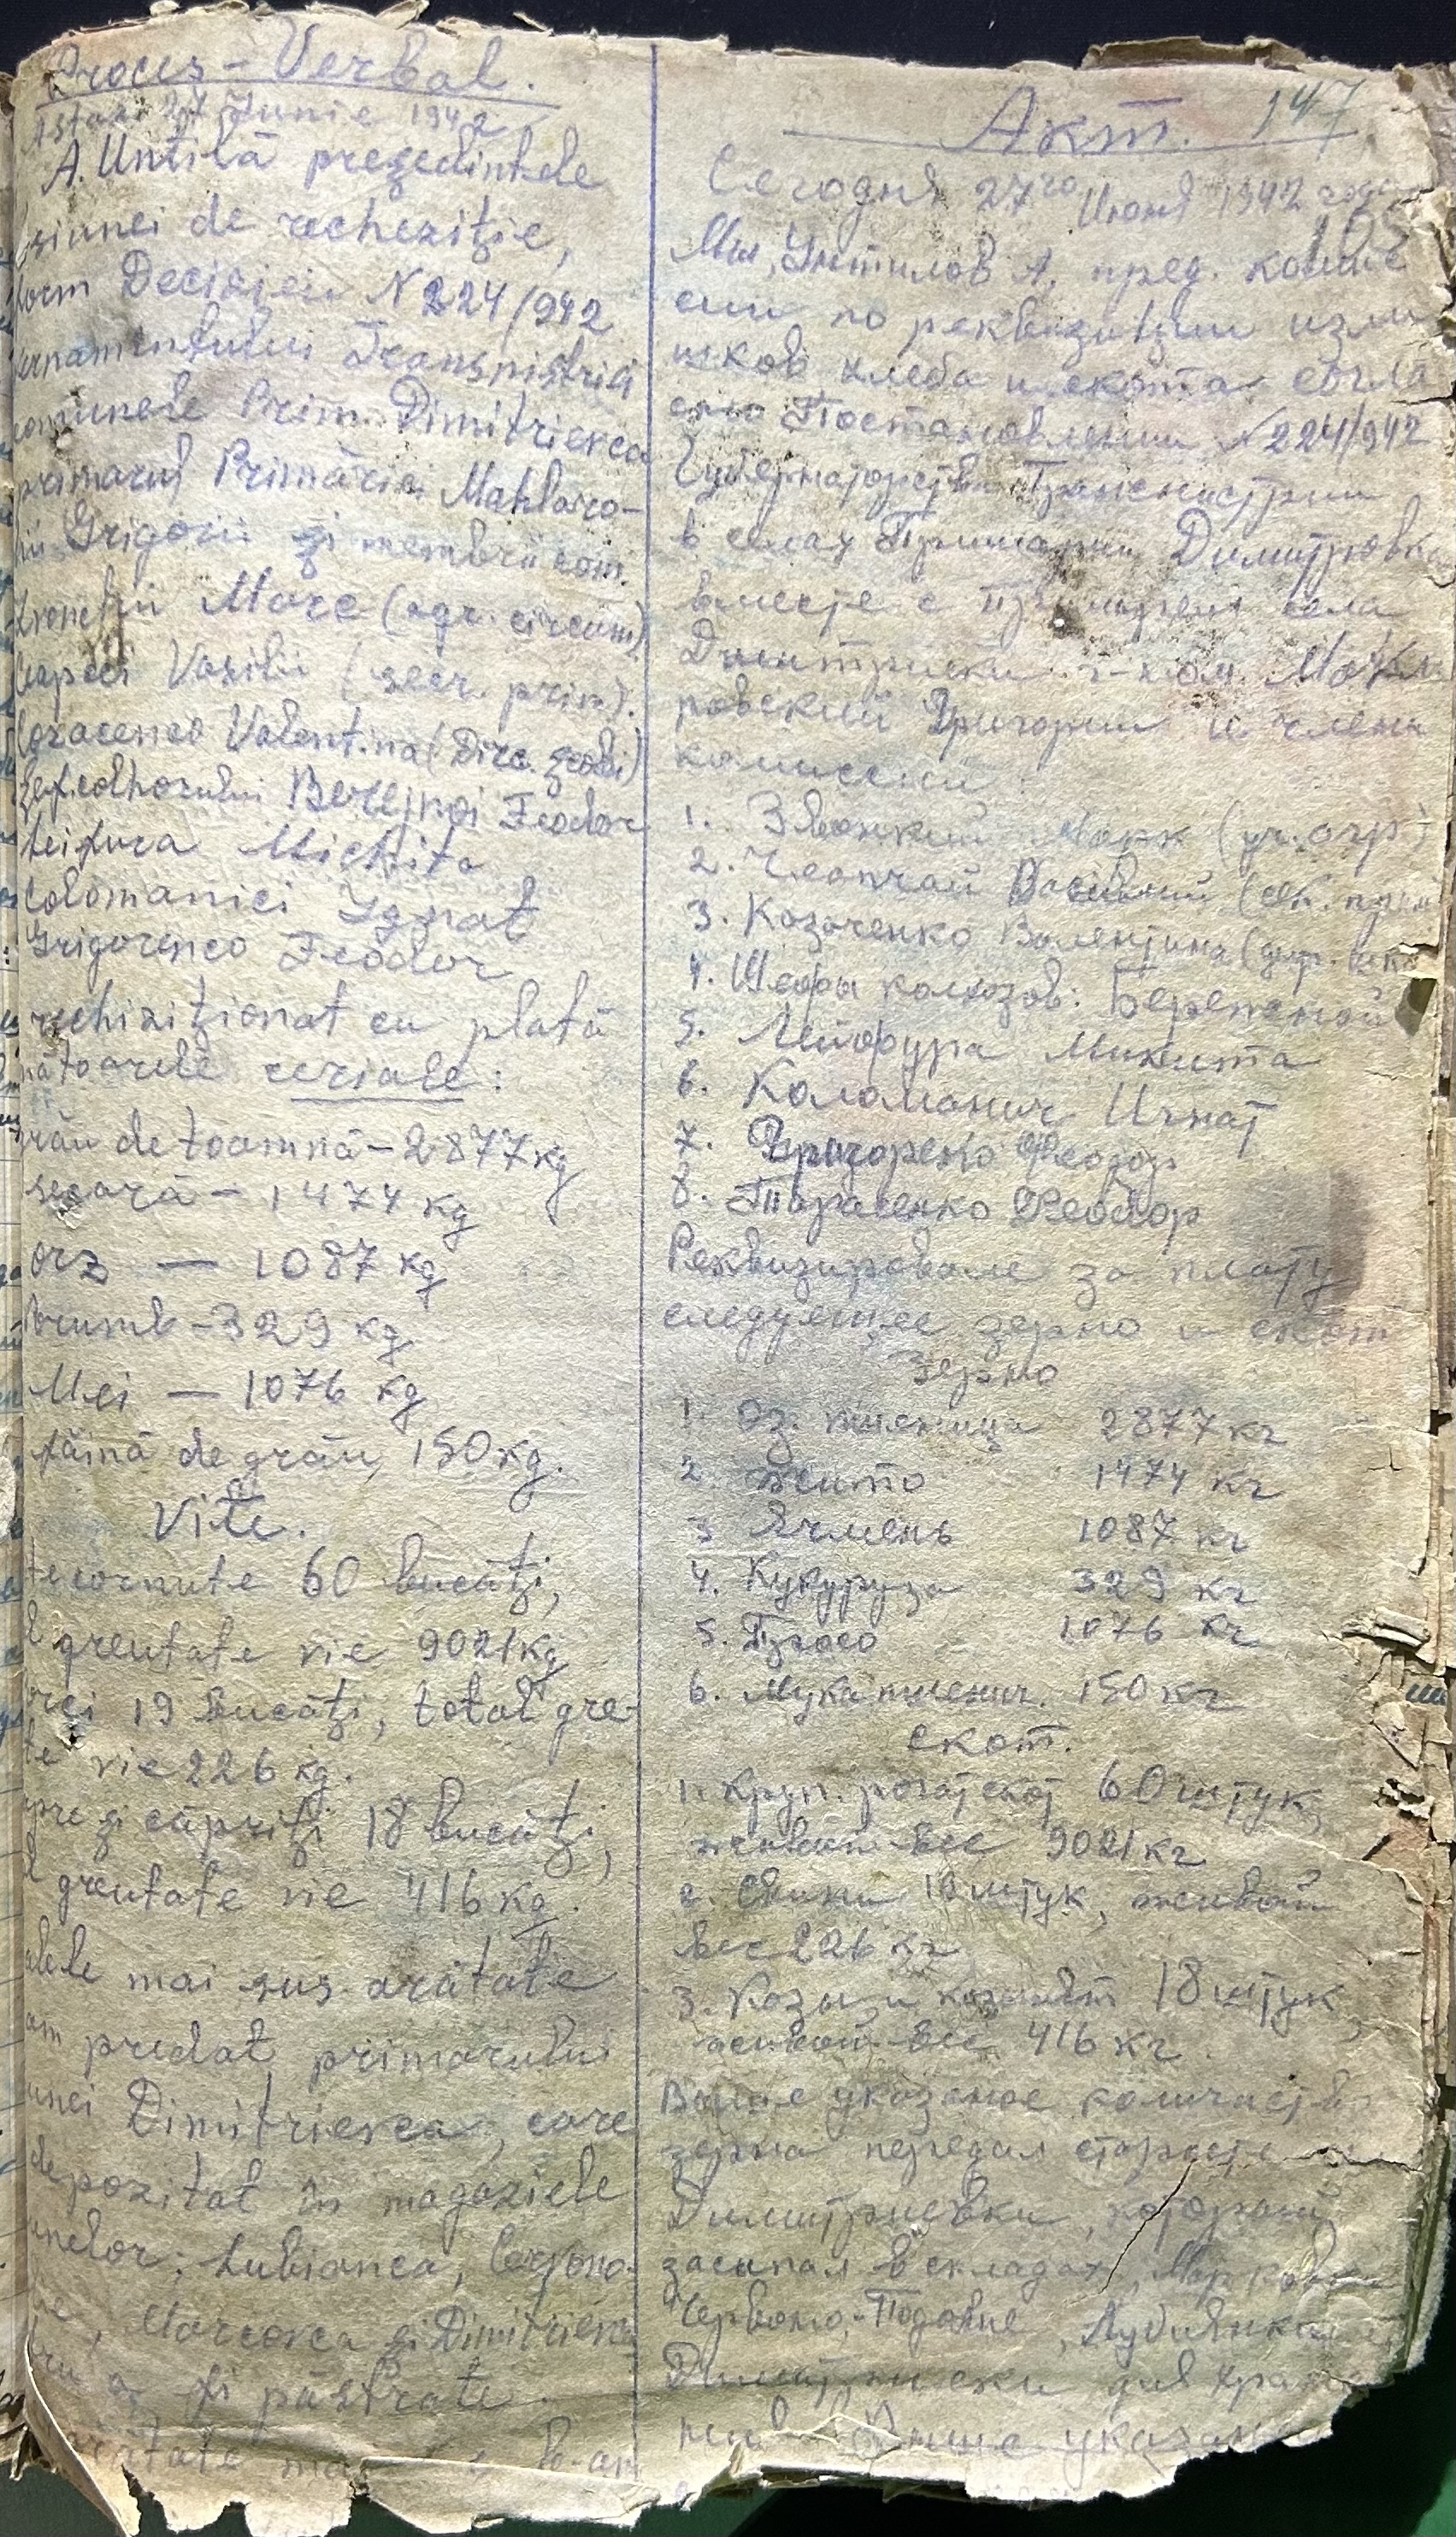 Proces-Verbal.
Astazi 27 Iunie 1942
A. Untilă preşedintele
siunei de rechesiţie,
form Deciziei N 224/942
ernamentului Transnistriei
comunele Prim. Dimitrievca
primarul Primăriei
Grigorii şi membrii com.
Marc (agr. circum).
Vasilii (secr. prim).
Valentina (Dirc. şcolii)
Feodor
Michita
Colomanici Ignat
Grigorenco Feodor
rechiziţionat cu plată
mătoarele ceriale:
grău de toamnă - 2877 kg
secară - 1474 kg
orz - 1087 kg
Porumb - 329 kg
Mei - 1076 kg
făină de grău, 150 kg.
Vite.
te cornute 60 bucăţi,
l greutate vie 9021 kg
porci 19 bucăţi, total gre-
te vie 226 kg.
apre şi căpriţi 18 bucăţi,
l greutate vie 416 kg.
alele mai sus arătate
am predat primarului
unei Dimitrievca, care
depozitat în magaziele
unelor: Lubianca,
, Marcovca şi Dimitrievca
tru a fi păstrate.
arătate mai
147
Акт.
Сегодня 27го Июня 1942 года
Мы, Унтилов А, пред. комис
сии по реквизиции изли
шков хлеба и скота согла
сно Постановлении N 224/942
Губернаторства Транснистрии
в селах Примарии Димитровка
вместе с Примарем села
Димитриевки г-ном.
ровский Григорий и члены
комиссии:
1. Звонкий Марк (уч. агр)
2. Василий (сек. прим
3. Козаченко Валентина (дир. шко
4. Шефы колхозов: Бережной
5. Лейфура Микита
6. Коломонич Игнат
7. Григоренко Феодор
8. Тарасенко Феодор
Реквизировале за плату
следующее зерно и скот
Зерно
1. Оз. пшеница 2877 кг
2. Жито 1474 кг
3 Ячмень 1087 кг
4. Кукуруза 329 кг
5. Просо 1076 кг
6. Мука пшенич. 150 кг
скот.
1. Круп. рогат скот 60 штук,
живой вес 9021 кг
2. Свини 19 штук, живой
вес 226 кг
3. Козы и козлят 18 штук,
живой вес 416 кг.
Выше указаное количество
зерна передал старосте
Димитриевки, который
засыпал в складах,
Червоно-Подолье, Лубянка
Димитриевки для хране
ния. Выше указаное